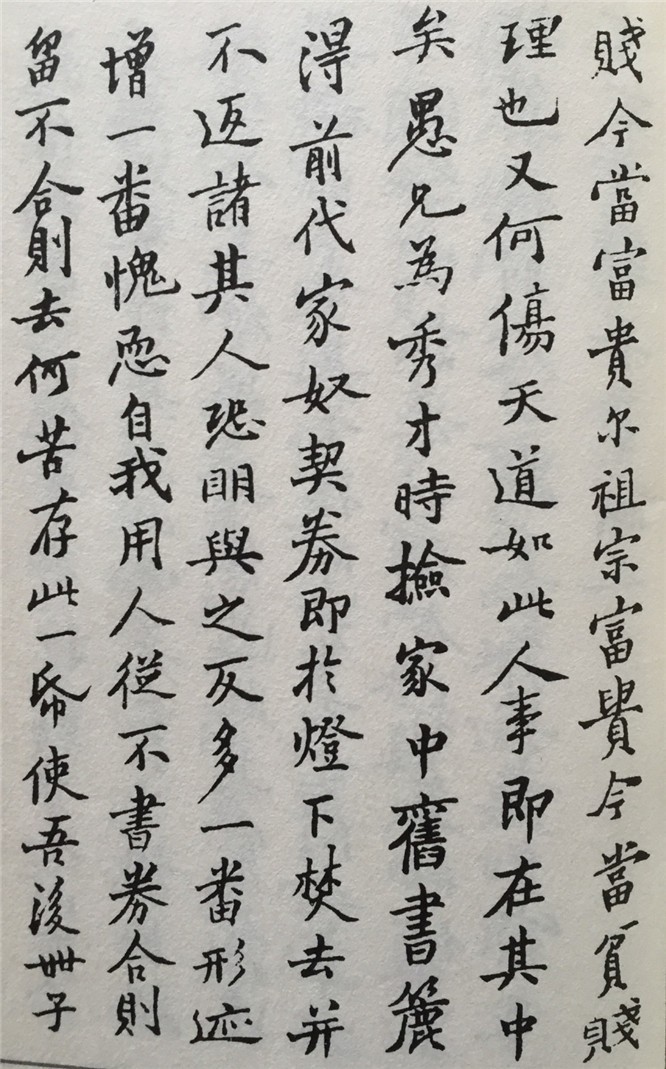 賤今當富貴尔祖宗富貴今當貧賤
理也又何傷天道如此人事即在其中
矣愚兄為秀才時撿家中舊書簏
得前代家奴契券即於燈下焚去并
不返諸其人恐明與之反多一番形迹
增一番愧恧自我用人從不書券合則
留不合則去何苦存此一帋使吾後世子